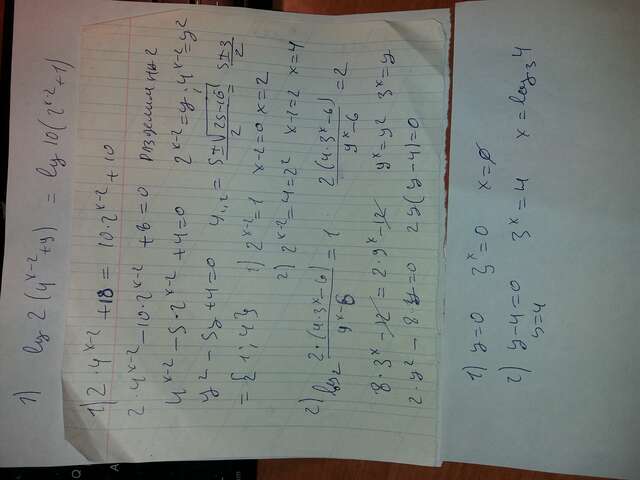 1) lg 2(4^x-2+y) = lg 10(2^x-2+1)
1) 2·4^x-2+18 = 10·2^x-2+10
2·4^x-2-10·2^x-2+8=0 разделим на 2
4^x-2-5·2^x-2+4=0 2^x-2=y; 4^x-2=y²
y²-5y+4=0 y1,2 = 5±√25-16/2 = 5±3/2
={1;4} 1) 2^x-2=1 x-2=0 x=2
2) 2^x-2=4=2² x-2=2 x=4
2) log2 2·(4·3^x-6)/9^x-6 = 1 2(4·3^x-6)/9^x-6 = 2
8·3^x-12=2·9^x-12 9^x=y² 3^x=y
2·y²-8·y=0 2y(y-4)=0
1) y=0 3^x=0 x=∅
2) y-4=0 3^x=4 x=log3 4
y=4